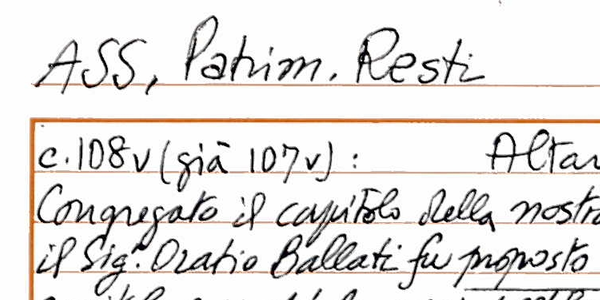 ASS, Patrim. Resti
c. 108v (già 107v): Altar
Congregato il capitolo della nostra
il Sig.r Oratio Ballati fu proposto